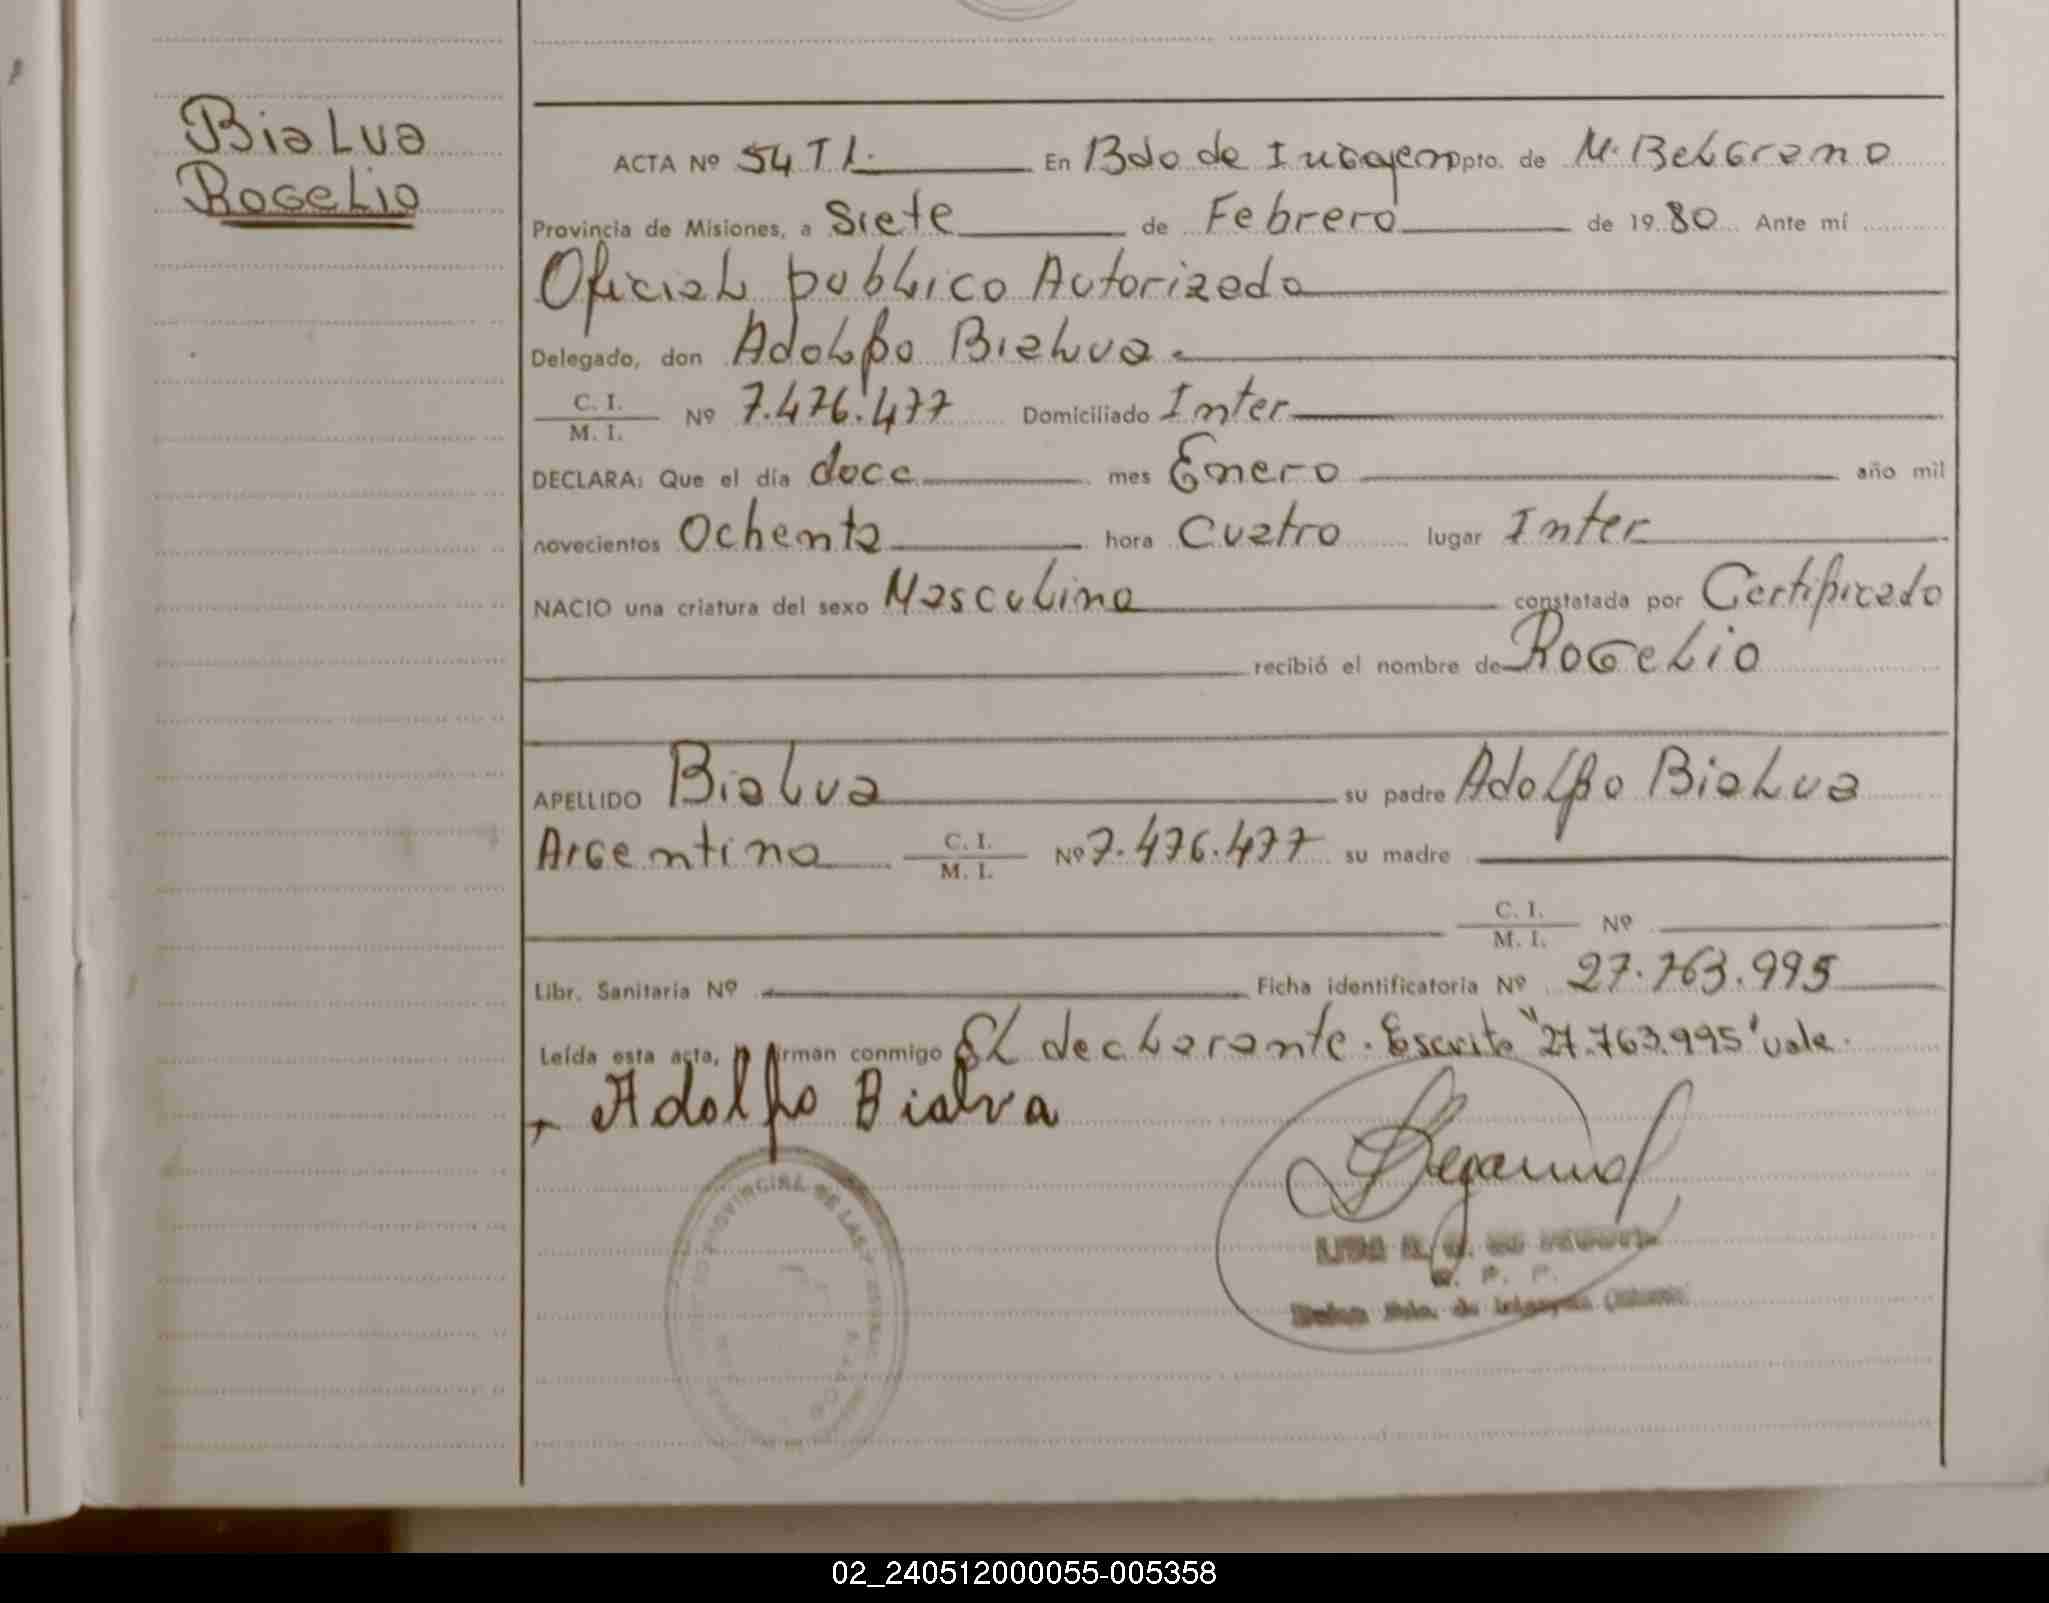 BiaLva
RoGeLio
ACTA Nº 54 T I. En Bdo de Irigoyen Dpto. de M. BeLGrano
Provincia de Misiones, a Siete de Febrero de 1980 Ante mí
OficiaL pubLico Autorizado
Delegado, don AdoLfo BiaLva.
C. I.
M. I. Nº 7.476.477 Domiciliado Inter
DECLARA: Que el día doce mes Enero año mil
novecientos Ochenta hora Cuatro lugar Inter
NACIO una criatura del sexo MascuLino constatada por Certificado
recibió el nombre de RoGeLio
APELLIDO BiaLva su padre AdoLfo BiaLva
ArGentino C. I.
M. I. Nº 7.476.477 su madre
C. I.
M. I. Nº
Libr. Sanitaria Nº Ficha identificatoria Nº 27.763.995
Leída esta acta, firman conmigo EL decLarante. Escrito "27.763.995" vale.
Adolfo Bialva
PROVINCIAL DE LAS
02_240512000055-005358